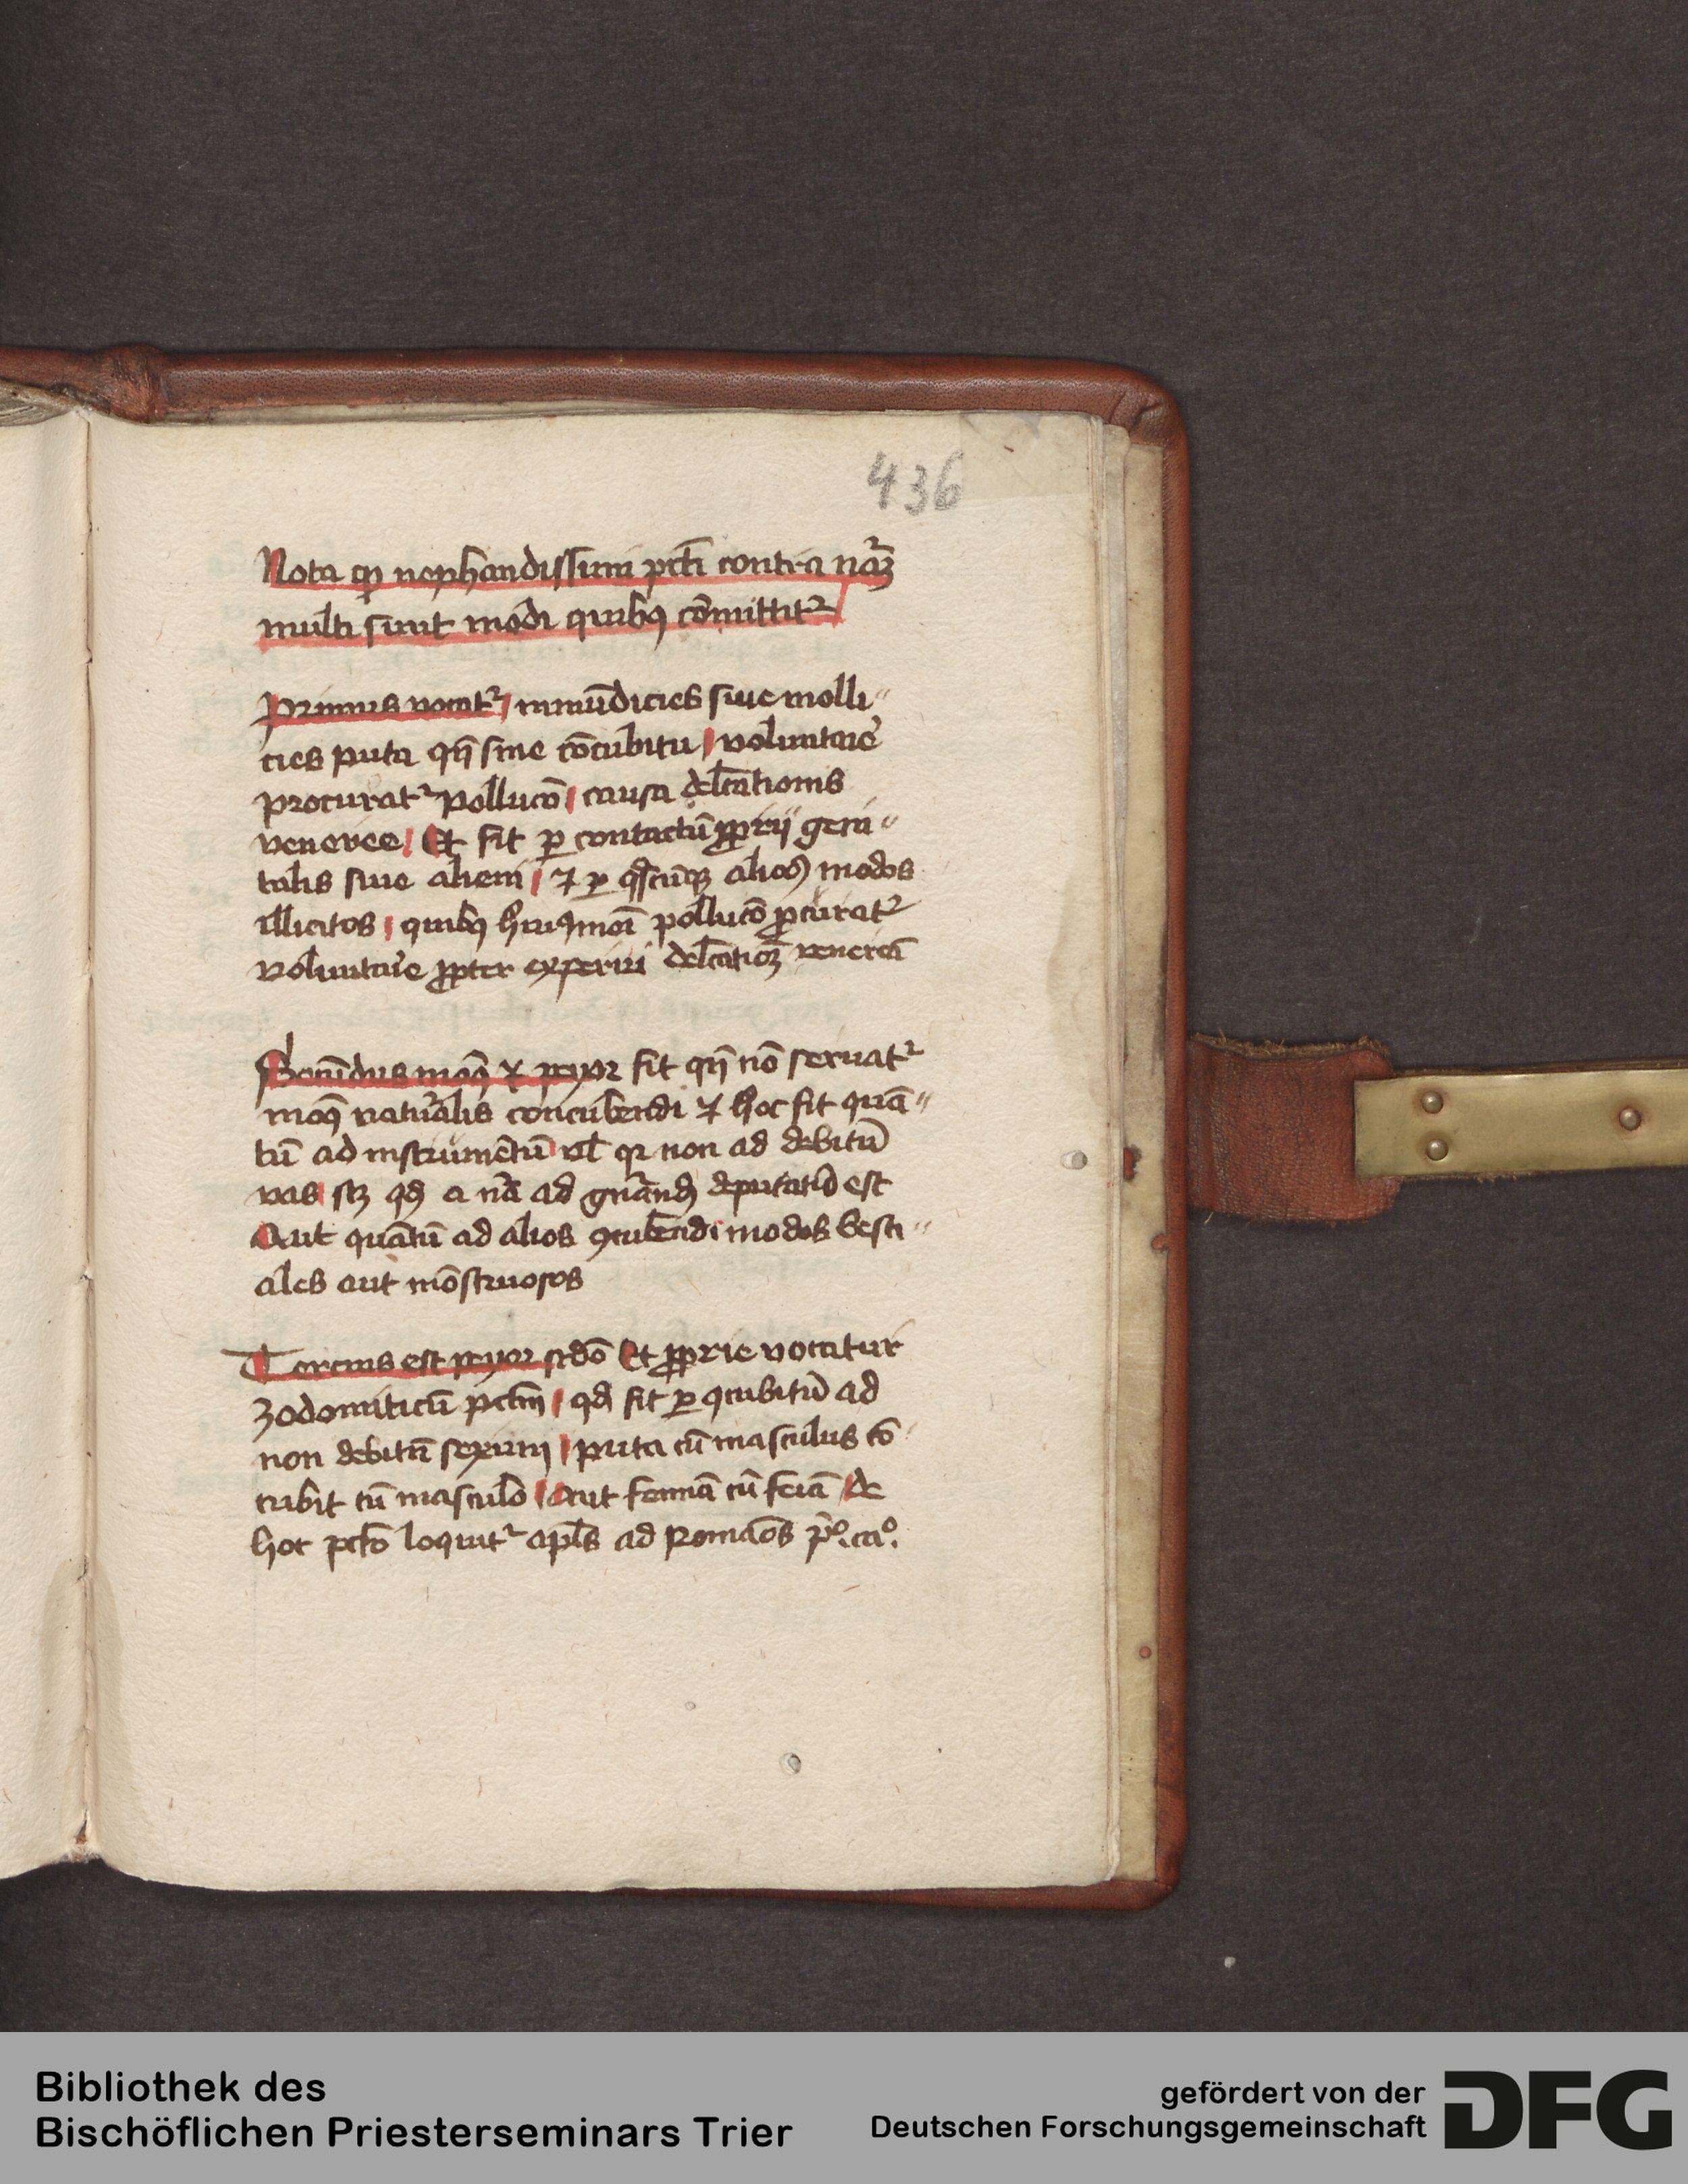 436
Nota qꝫ nephandissimi pcti͞ contra na͞ꝫ
multi sunt modi quibꝯ co͞mittit᷑
Primus vocat᷑ inmu͞dicies siue molli〃
cies puta qn͞ sine co͞cubitu voluntarie
procurat᷑ polluco͞ causa delc͞ationis
veneree Et fit ꝑ contactu͞ ꝓprij geni〃
talis siue alieni ⁊ ꝑ qͦscu͞qꝫ alios modos
illicitos quibꝯ hͥusmoi͞ polluco͞ ꝓcurat᷑
voluntarie ꝓpter experiri delc͞atioꝫ venerea͞
Secu͞dus modꝯ ⁊ peyor fit qn͞ no͞ seruat᷑
modꝯ naturalis concubendi ⁊ hoc fit qua͞〃
tu͞ ad instrume͞tu͞ vl͞ qꝛ non ad debitu͞
vas scꝫ qđ a na͞ ad gn͞andꝫ deputatu͞ est
Aut qua͞tu͞ ad alios ꝯcube͞di modos besti〃
ales aut mo͞struosos
Tercius est peyor scdo͞ Et ꝓprie vocatur
zodomiticu͞ pctm͞ qđ fit ꝑ ꝯcubitu͞ ad
non debitu͞ sexum puta cu͞ masculus co͞
cubit cu͞ masculo Aut femia͞ cu͞ feia͞ De
hoc pcto͞ loquit᷑ apl͞s ad Romao͞s pͦ. caͦ.
Bibliothek des
Bischöflichen Priesterseminars Trier
gefördert von der
Deutschen Forschungsgemeinschaft
DFG